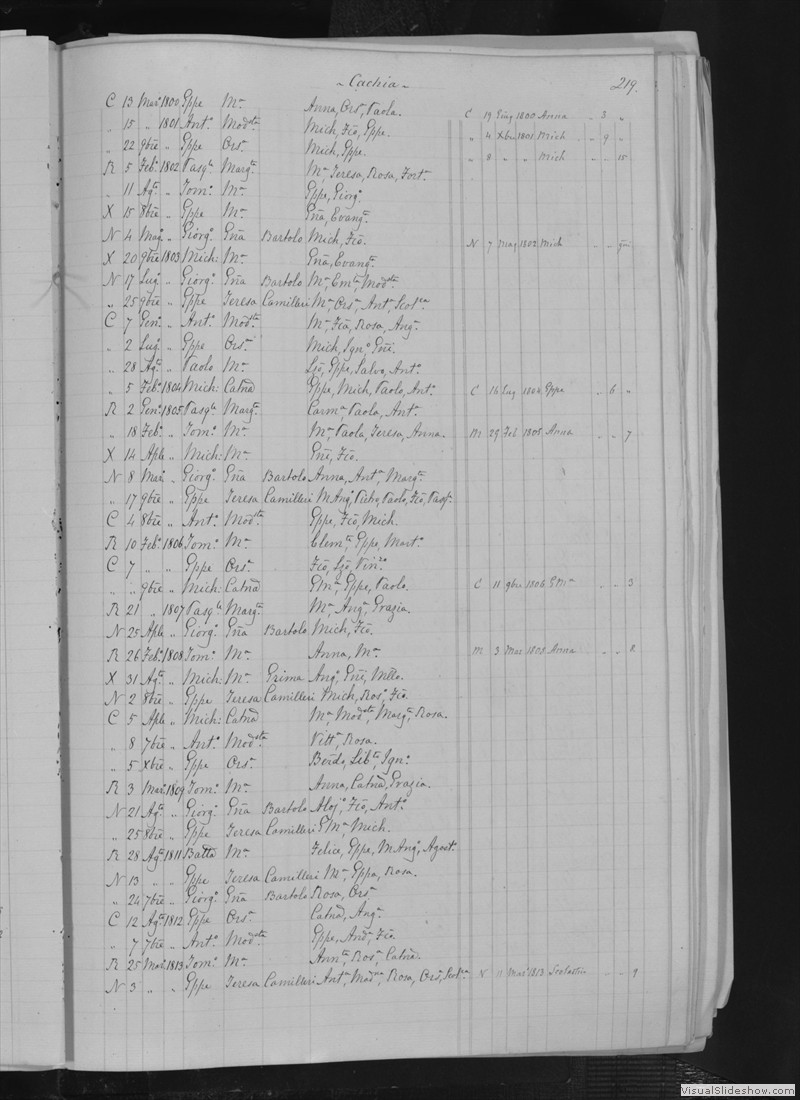 - Cachia -
219.
C 13 Mar. 1800 Gppe Mª Anna, Orsª, Paola. C 19 Giug 1800 Anna .. 3 "
" 15 " 1801 Antº Modsta Mich, Fcõ, Gppe. " 4 Xbre 1801 Mich .. 9 "
" 22 9bre " Gppe Orsª Mich, Gppe. " 8 " " Mich .. .. 15
R 5 Febº 1802 Pasqle Margta Mª, Teresa, Rosa, Fortª
" 11 Agº " Tomº Mª Gppe, Giorgº
X 15 8bre " Gppe Mª Gña, Evangª
N 4 Magº " Giorgº Gña Bartolo Mich, Fcõ. N 7 Mag 1802 Mich
X 20 9bre 1803 Mich: Mª Gña, Evangª
N 17 Lugº " Giorgº Gña Bartolo Mª Emª, Modsta
" 25 9bre " Gppe Teresa Camilleri Mª, Orsª, Antª, Scolca
C 7 Genº " Antº Modsta Mª, Fcã, Rosa, Angª
" 2 Lugº " Gppe Orsª Mich, Ignº, Gñi.
" 28 Agº " Paolo Mª Lzõ, Gppe, Salvo, Antº
" 5 Febº 1804 Mich: Catnã Gppe, Mich, Paolo, Antº C 16 Lug 1804 Gppe .. 6 "
R 2 Genº 1805 Pasqle Margta Carmª Paola, Antª
" 18 Febº " Tomº Mª Mª, Paola, Teresa, Anna. M 29 Feb 1805 Anna .. .. 7
X 14 Aple " Mich: Mª Gñi, Fcõ.
N 8 Marº " Giorgº Gña Bartolo Anna, Antª, Margª
" 17 9bre " Gppe Teresa Camilleri M Angº, Paolo, Fcõ, Pasqº
C 4 8bre " Antº Modsta Gppe, Fcõ, Mich.
R 10 Febº 1806 Tomº Mª Clemte, Gppe, Martº
C 7 " " Gppe Orsª Fcõ, Lzõ, Vinzº
" " 9bre " Mich: Catnã Mª, Gppe, Paolo. C 11 9bre 1806 .. .. 3
R 21 " 1807 Pasqle Margta Mª, Angª, Grazia.
N 25 Aple " Giorgº Gña Bartolo Mich, Fcõ.
R 26 Febº 1808 Tomº Mª Anna, Mª M 3 Mar 1808 Anna .. .. 8
X 31 Agº " Mich: Mª Grima Angº, Gñi,
N 2 8bre " Gppe Teresa Camilleri Mich, Rosº, Fcõ
C 5 Aple " Mich: Catnã Mª, Modsta, Margª, Rosa.
" 8 7bre " Antº Modsta Vittª, Rosa.
" 5 Xbre " Gppe Orsª Berdo, Libtº, Ignº
R 3 Marº 1809 Tomº Mª Anna, Catnã, Grazia.
N 21 Agº " Giorgº Gña Bartolo Alojº, Fcõ, Antº
" 25 8bre " Gppe Teresa Camilleri Mª, Mich.
R 28 Agº 1811 Batta Mª Felice, Gppe, M Angº, Agostº
N 13 " " Gppe Teresa Camilleri Mª, Gppa, Rosa.
" 24 7bre " Giorgº Gña Bartolo Rosa, Orsª
C 12 Agº 1812 Gppe Orsª Catnã, Angª
" 7 7bre " Antº Modsta Gppe, Andª, Fcõ.
R 25 Marº 1813 Tomº Mª Annta, Rosª, Catnã.
N 3 " " Gppe Teresa Camilleri Antª, Madna, Rosa, Orsª, Scolca N 11 Mar 1813 Scolastca .. .. 9
VisualSlideshow.com